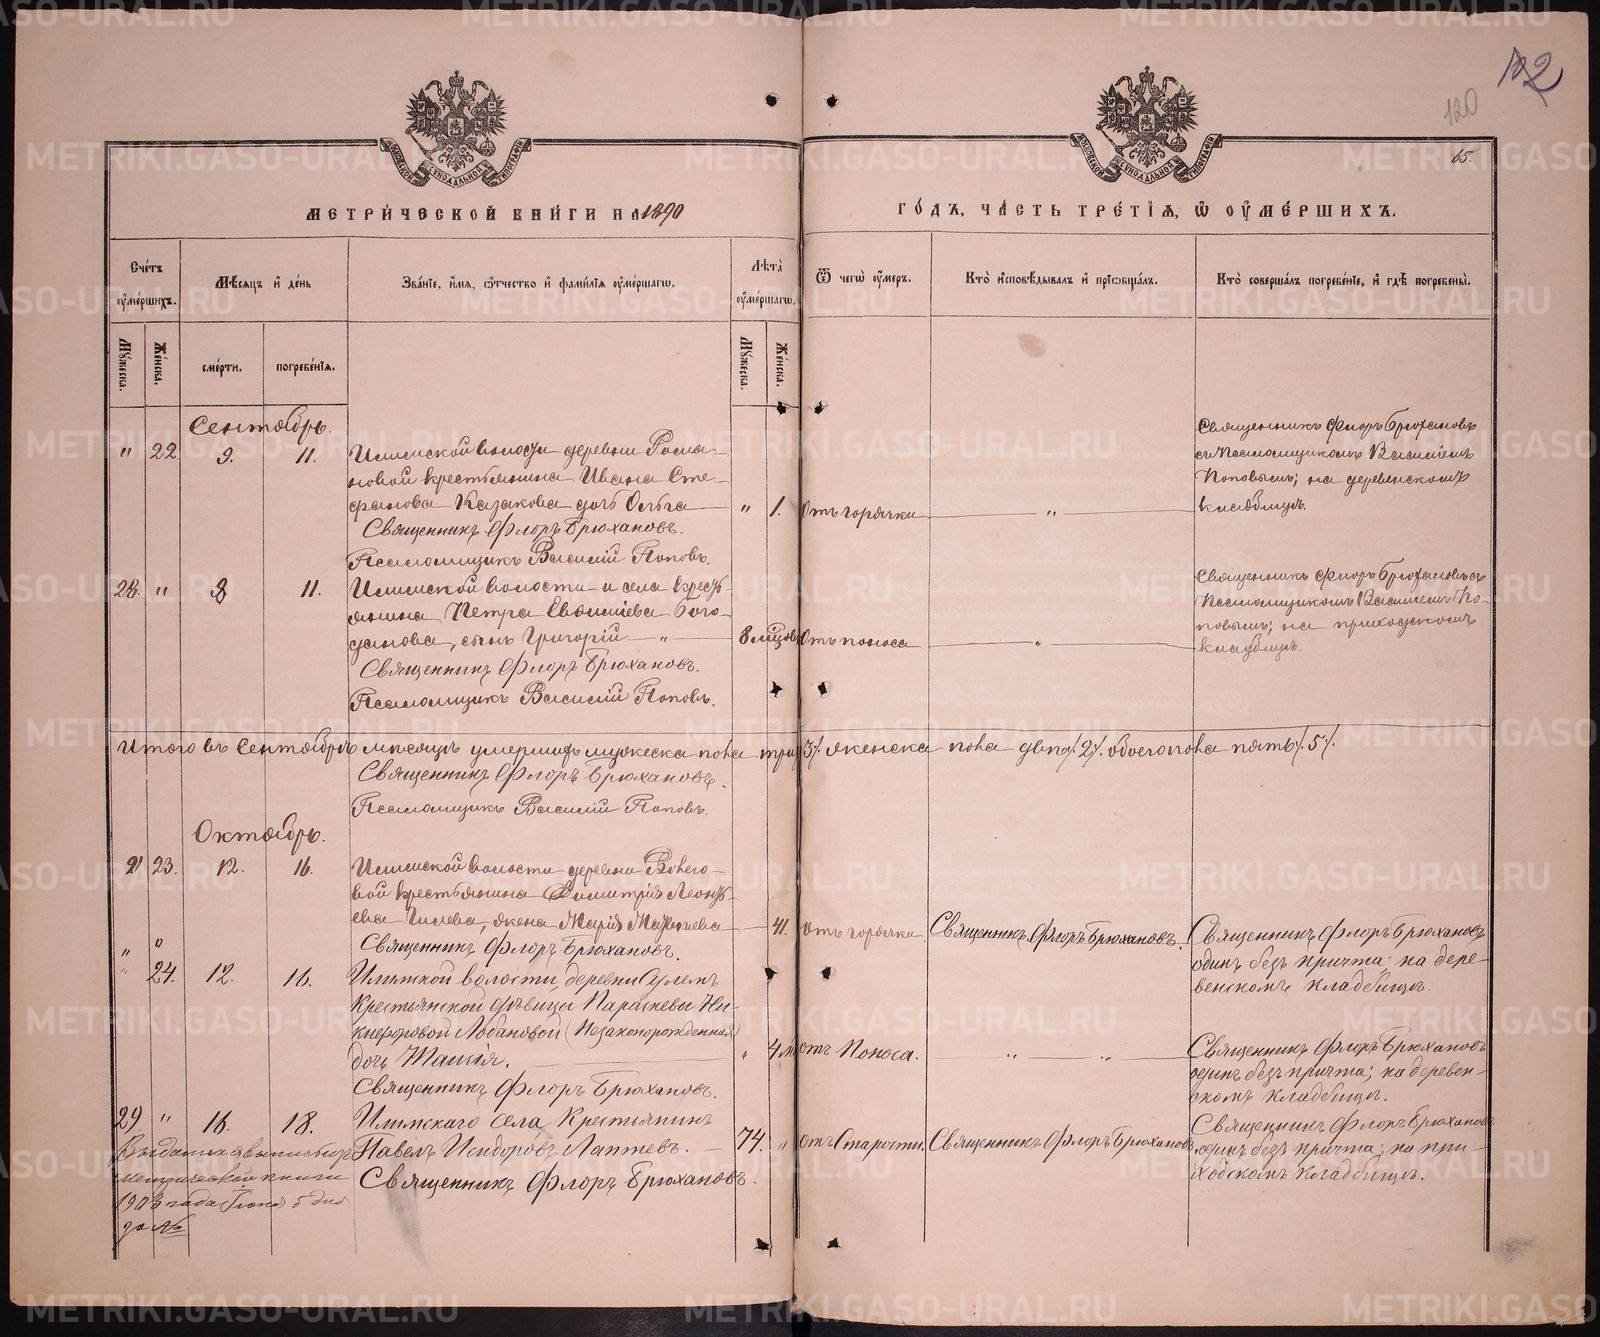 122
120
65.
МЕТРИЧЕСКОЙ КНИГИ НА 1890
ГОДЪ, ЧАСТЬ ТРЕТІЯ, Ѿ ОУМЕРШИХЪ.
МОСКОВСКОЙ СѴНОДАЛЬНОЙ ТИПОГРАФІИ
МОСКОВСКОЙ СѴНОДАЛЬНОЙ ТИПОГРАФІИ
Счетъ оумершихъ.
Мѣсяцъ и день
Званіе, имя, отчество и фамилія оумершаго.
Лѣта оумершаго.
Ѿ чего оумеръ.
Кто исповѣдывалъ и пріобщалъ.
Кто совершалъ погребеніе, и гдѣ погребены.
Мужеска. Женска. смерти. погребенія. Мужеска. Женска.
Сентябрь.
" 22 9. 11. Илимской волости деревни Рома-
новой крестьянина Ивана Сте-
фанова Казакова дочь Ольга " 1. Отъ горячки "
Священникъ Флоръ Брюхановъ.
Псаломщикъ Василій Поповъ.
Священникъ Флоръ Брюхановъ
съ Псаломщикомъ Василіемъ
Поповымъ; на деревенскомъ
кладбищѣ.
28. " 8 11. Илимской волости и села кресть-
янина Петра Евфиміева Бого-
данова, сынъ Григорій " 8 мѣсяцовъ Отъ поноса "
Священникъ Флоръ Брюхановъ.
Псаломщикъ Василій Поповъ.
Священникъ Флоръ Брюхановъ съ
Псаломщикомъ Василіемъ По-
повымъ; на приходскомъ
кладбищѣ.
Итого въ Сентябрѣ мѣсяцѣ умершихъ мужеска пола три /3/. женска пола двѣ /2/. обоего пола пять /5/.
Священникъ Флоръ Брюхановъ.
Псаломщикъ Василій Поповъ.
Октябрь.
23. 12. 16. Илимской волости деревни
крестьянина Димитрія Леонть-
ева жена Марія 41. отъ горячки Священникъ Флоръ Брюхановъ.
Священникъ Флоръ Брюхановъ.
Священникъ Флоръ Брюхановъ
одинъ безъ причта; на дере-
венскомъ кладбищѣ.
" 24. 12. 16. Илимской волости, деревни Сулемъ
Крестьянской дѣвицы Параскевы Ни-
кифоровой Лобановой (Незаконорожденная)
дочь Таисія. " 4 м. отъ Поноса. " "
Священникъ Флоръ Брюхановъ.
Священникъ Флоръ Брюхановъ
одинъ безъ причта; на деревен-
скомъ кладбищѣ.
29. " 16. 18. Илимскаго села Крестьянинъ
Павелъ Исидоровъ Лаптевъ. 74. " отъ Старости. Священникъ Флоръ Брюхановъ
Священникъ Флоръ Брюхановъ.
Священникъ Флоръ Брюхановъ
одинъ безъ причта; на при-
ходскомъ кладбищѣ.
Выдана выпись изъ
метрической книги
1908 года Іюня 5 дня
за №
METRIKI.GASO-URAL.RU